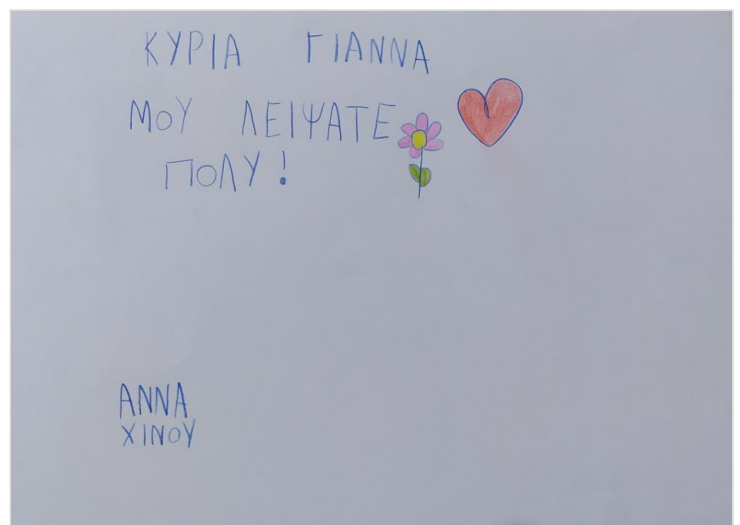 ΚΥΡΙΑ ΓΙΑΝΝΑ
ΜΟΥ ΛΕΙΨΑΤΕ
ΠΟΛΥ!
ΑΝΝΑ
ΧΙΝΟΥ